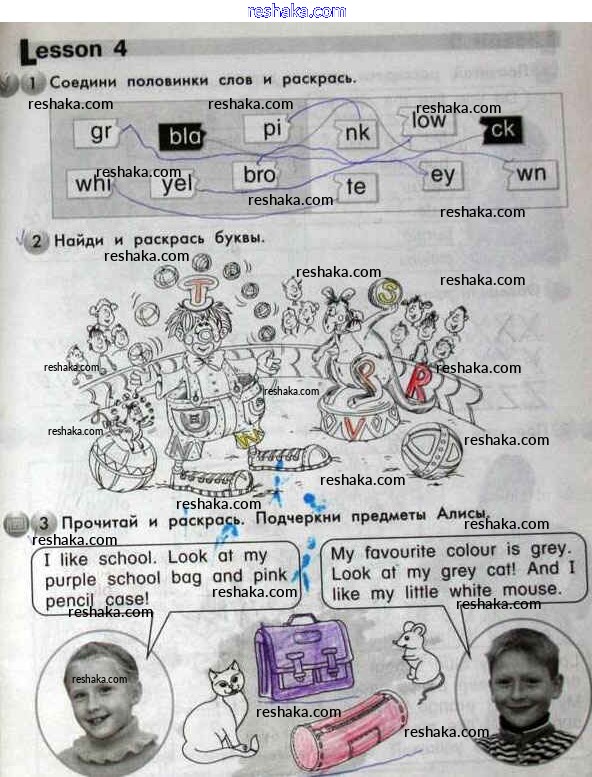 reshaka.com
Lesson 4
1 Соедини половинки слов и раскрась.
reshaka.com reshaka.com reshaka.com
gr bla pi nk low ck
reshaka.com
whi yel bro te ey wn
reshaka.com
reshaka.com
2 Найди и раскрась буквы.
reshaka.com
reshaka.com
reshaka.com
T S
reshaka.com reshaka.com
P R
reshaka.com
reshaka.com
V
reshaka.com
N W
reshaka.com reshaka.com
3 Прочитай и раскрась. Подчеркни предметы Алисы.
reshaka.com reshaka.com
I like school. Look at my
purple school bag and pink
pencil case!
My favourite colour is grey.
Look at my grey cat! And I
like my little white mouse.
reshaka.com
reshaka.com
reshaka.com
reshaka.com
reshaka.com
reshaka.com